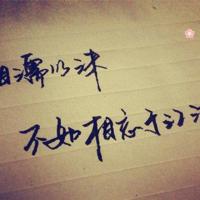 濡以沫
不如相忘于江